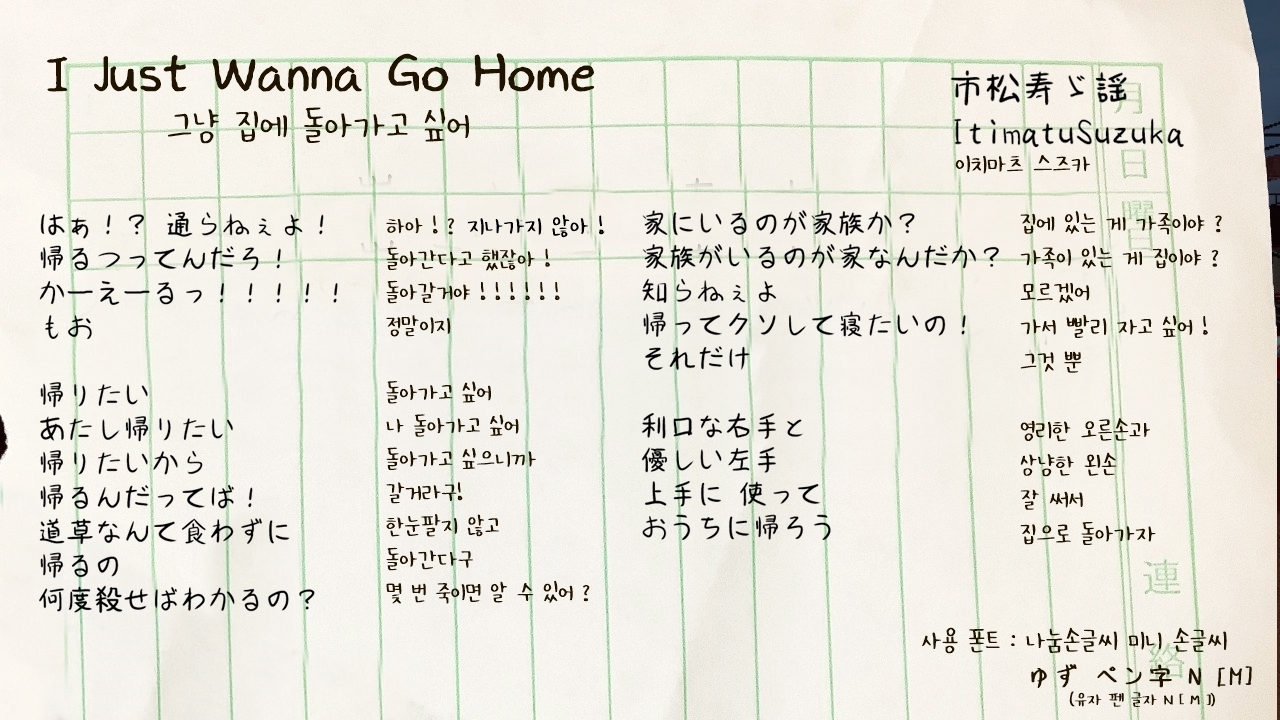 I Just Wanna Go Home
그냥 집에 돌아가고 싶어
市松寿ゞ謡
ItimatuSuzuka
이치마츠 스즈카
はぁ！？ 通らねぇよ！
帰るつってんだろ！
かーえーるっ！！！！！
もお
帰りたい
あたし帰りたい
帰りたいから
帰るんだってば！
道草なんて食わずに
帰るの
何度殺せばわかるの？
하아！？ 지나가지 않아！
돌아간다고 했잖아！
돌아갈거야！！！！！！
정말이지
돌아가고 싶어
나 돌아가고 싶어
돌아가고 싶으니까
갈거라구!
한눈팔지 않고
돌아간다구
몇 번 죽이면 알 수 있어？
家にいるのが家族か？
家族がいるのが家なんだか？
知らねぇよ
帰ってクソして寝たいの！
それだけ
利口な右手と
優しい左手
上手に 使って
おうちに帰ろう
집에 있는 게 가족이야？
가족이 있는 게 집이야？
모르겠어
가서 빨리 자고 싶어！
그것 뿐
영리한 오른손과
상냥한 왼손
잘 써서
집으로 돌아가자
月
日
曜
日
連
絡
사용 폰트 : 나눔손글씨 미니 손글씨
ゆず ペン字 N [M]
(유자 펜 글자 N [ M ])